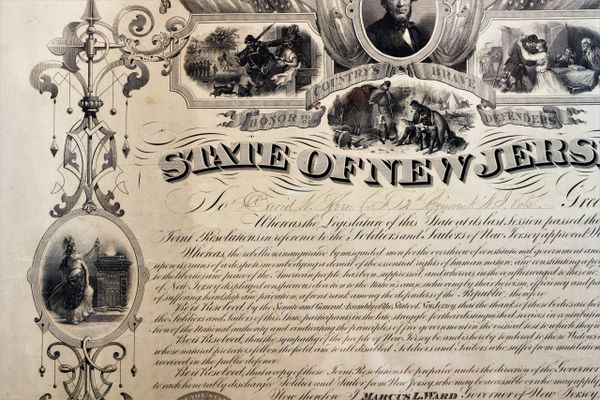 COUNTRY'S BRAVE
HONOR TO DEFENDERS
STATE OF NEW JERS
To David Co. I 12th Regiment N.J. Vols. Gree
Whereas the Legislature of this State at its last Session passed the
Joint Resolutions in reference to the Soldiers and Sailors of New Jersey approved
Whereas, the rebellion inaugurated by misguided men for the overthrow of constitutional government
upon its ruins of a despotism and
to the liberties and peace of the American people has been suppressed, and whereas, in the conflict waged to
of New Jersey displayed conspicuous devotion to the Nation's cause, achieving by their heroism, efficiency and
of suffering hardship and privation, a proud name among the defenders of the Republic, therefore
Be it Resolved, by the Senate and General Assembly of the State of New Jersey that the thanks of these bodies are
the Soldiers and Sailors of this State, participants in the late struggle, for their distinguished services in
tion of the National authority, and vindicating the principles of free government in the
Be it Resolved, that the sympathy of the people of New Jersey be and is hereby tendered to those
whose natural protectors fell on the field and to all disabled Soldiers and Sailors who suffer from
received in the public defence.
Be it Resolved, that a copy of these Joint Resolutions be prepared under the direction of the Governor
to each honorably discharged Soldier and Sailor from New Jersey, who may be accessible or who may apply
Now therefore I, MARCUS L. WARD Governor of New Jersey,